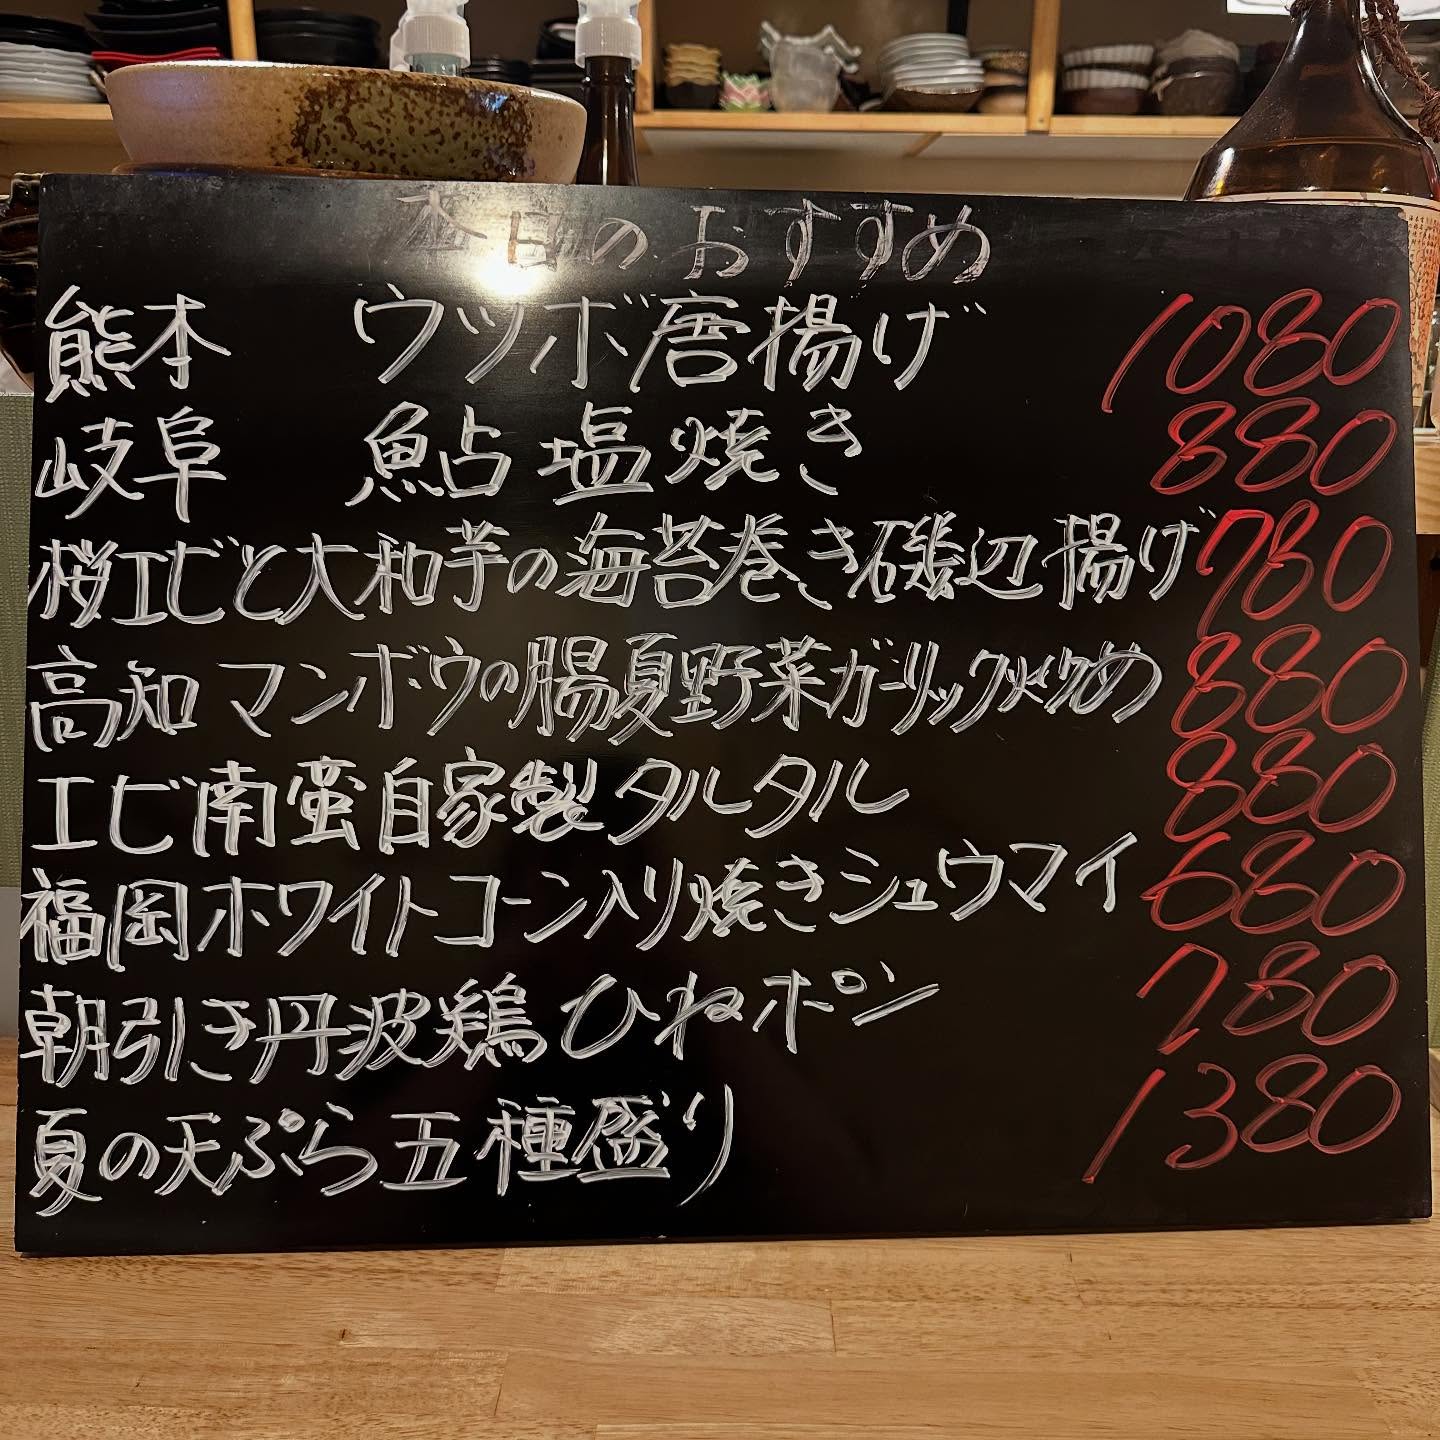 本日のおすすめ
熊本 ウツボ唐揚げ 1080
岐阜 鮎塩焼き 880
桜エビと大和芋の海苔巻き磯辺揚げ 780
高知マンボウの腸夏野菜ガーリック炒め 880
エビ南蛮自家製タルタル 880
福岡ホワイトコーン入り焼きシュウマイ 680
朝引き丹波鶏ひねポン 780
夏の天ぷら五種盛り 1380